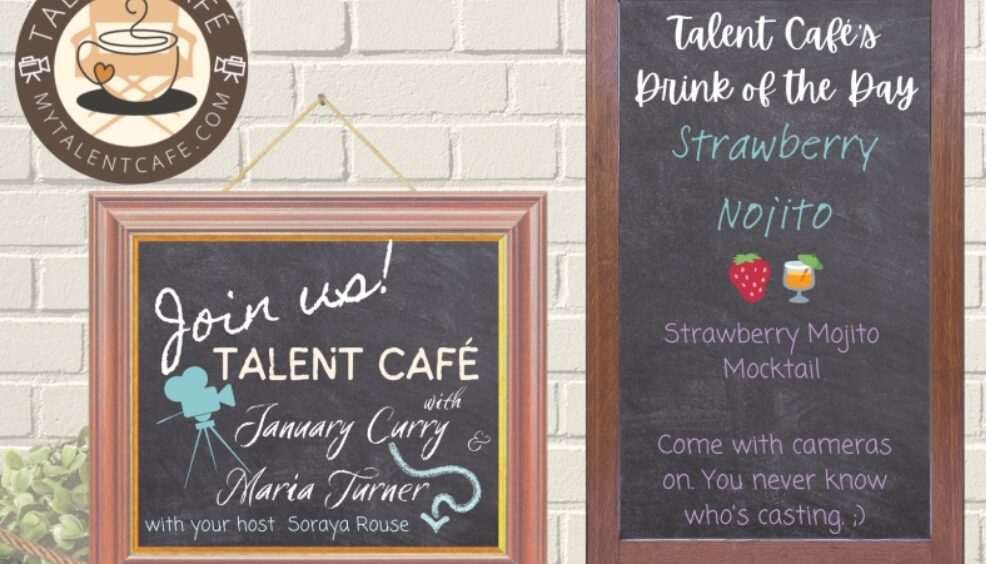 TALENT CAFÉ
MYTALENTCAFE.COM
Join us!
TALENT CAFÉ
with
January Curry &
Maria Turner
with your host Soraya Rouse
Talent Café's
Drink of the Day
Strawberry
Nojito
Strawberry Mojito
Mocktail
Come with cameras
on. You never know
who's casting. ;)